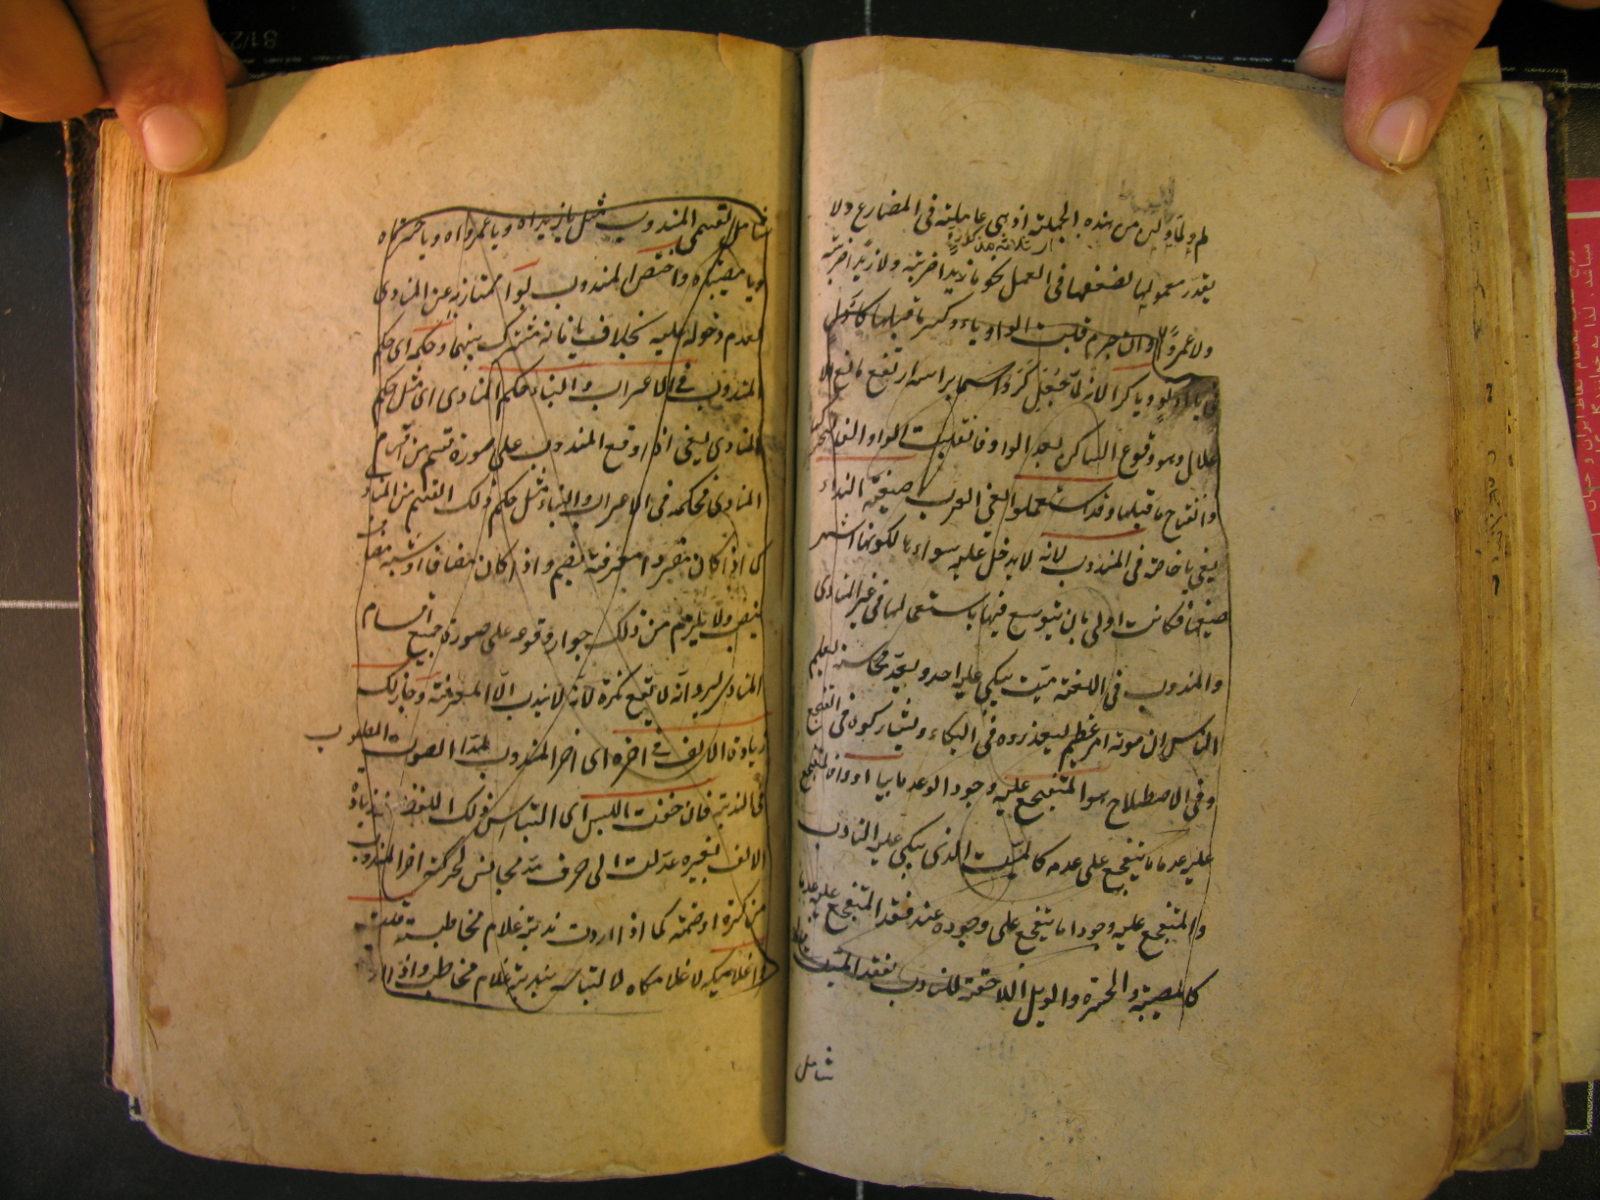 لم ولما ولن من هذه الجملة اذ هي عاملة في المضارع ولا
يقدر معمولها لضعفها في العمل نحو يا زيدا ضربته ولا زيدا ضربته
ولا عمروا وان جرم قلبت الواو ياء وكسر ما قبلها
ويا كرا لانه لم يجعل كرو اسما براسه ارتفع مانع الا
علال وهو وقوع الساكن بعد الواو فانقلبت الواو الفا لتحركها
وانفتاح ما قبلها وقد استعملوا يعني العرب صيغة النداء
يعني يا خاصة في المندوب لانه لا يدخل عليه سواء يا لكونها اشهر
صيغها فكانت اولى بان يتوسع فيها باستعمالها في غير المنادى
والمندوب في اللغة ميت يبكي عليه احد ويعد محاسنه ليعلم
الناس ان موته امر عظيم ليعذروه في البكاء ويشاركوه في التفجع
وفي الاصطلاح هو المتفجع عليه وجودا او عدما بيا او وا فالمتفجع
عليه عدما ما يتفجع على عدمه كالميت الذي يبكي عليه النادب
والمتفجع عليه وجودا ما يتفجع على وجوده عند فقد المتفجع عليه عدما
كالمصيبة والحسرة والويل اللاحقة للنادب لفقد الميت
شامل
شامل لقسمي المندوب مثل يا زيداه ويا عمرواه ويا حسرتاه
ويا مصيبتاه واختص المندوب بوا ممتازا به عن المنادى
لعدم دخوله عليه بخلاف يا فانه مشترك بينهما وحكمه اي حكم
المندوب في الاعراب والبناء حكم المنادى اي مثل حكم
المنادى يعني اذا وقع المندوب على صورة قسم من اقسام
المنادى فحكمه في الاعراب والبناء مثل حكم ذلك القسم من المناد
ى اذا كان مفردا معرفة يضم واذا كان مضافا او شبه مضاف
ينصب ولا يلزم من ذلك جواز وقوعه على صورة جميع اقسام
المنادى ليرد انه لا يقع نكرة لانه لا يندب الا المعرفة وجاز لك
زيادة الالف في اخره اي اخر المندوب لمد الصوت المطلوب
في الندبة فان خفت اللبس اي التباس ذلك اللفظ عند زيادة
الالف بغيره عدلت الى حرف مد مجانس لحركة اخر المندوب
من كسرة او ضمة كما اذا اردت ندبة غلام مخاطبة قلت
وا غلامكيه لا غلامكاه لالتباسه بندبة غلام مخاطب واذا